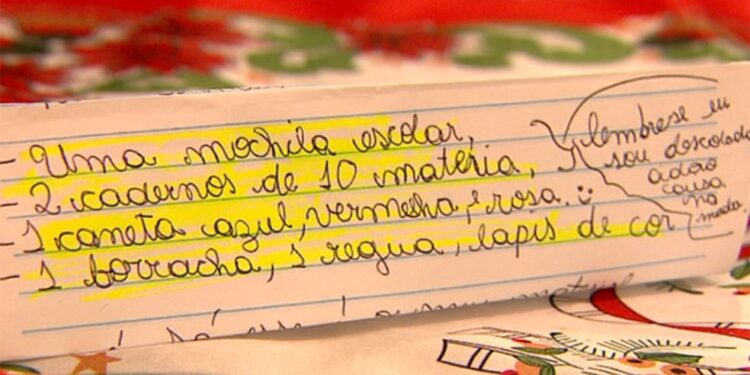 - Uma mochila escolar,
- 2 cadernos de 10 materia,
- 1 caneta azul, vermelha, e rosa. :)
- 1 borracha, 1 regua, lapis de cor
lembrese eu
sou descolada
causa
na
moda